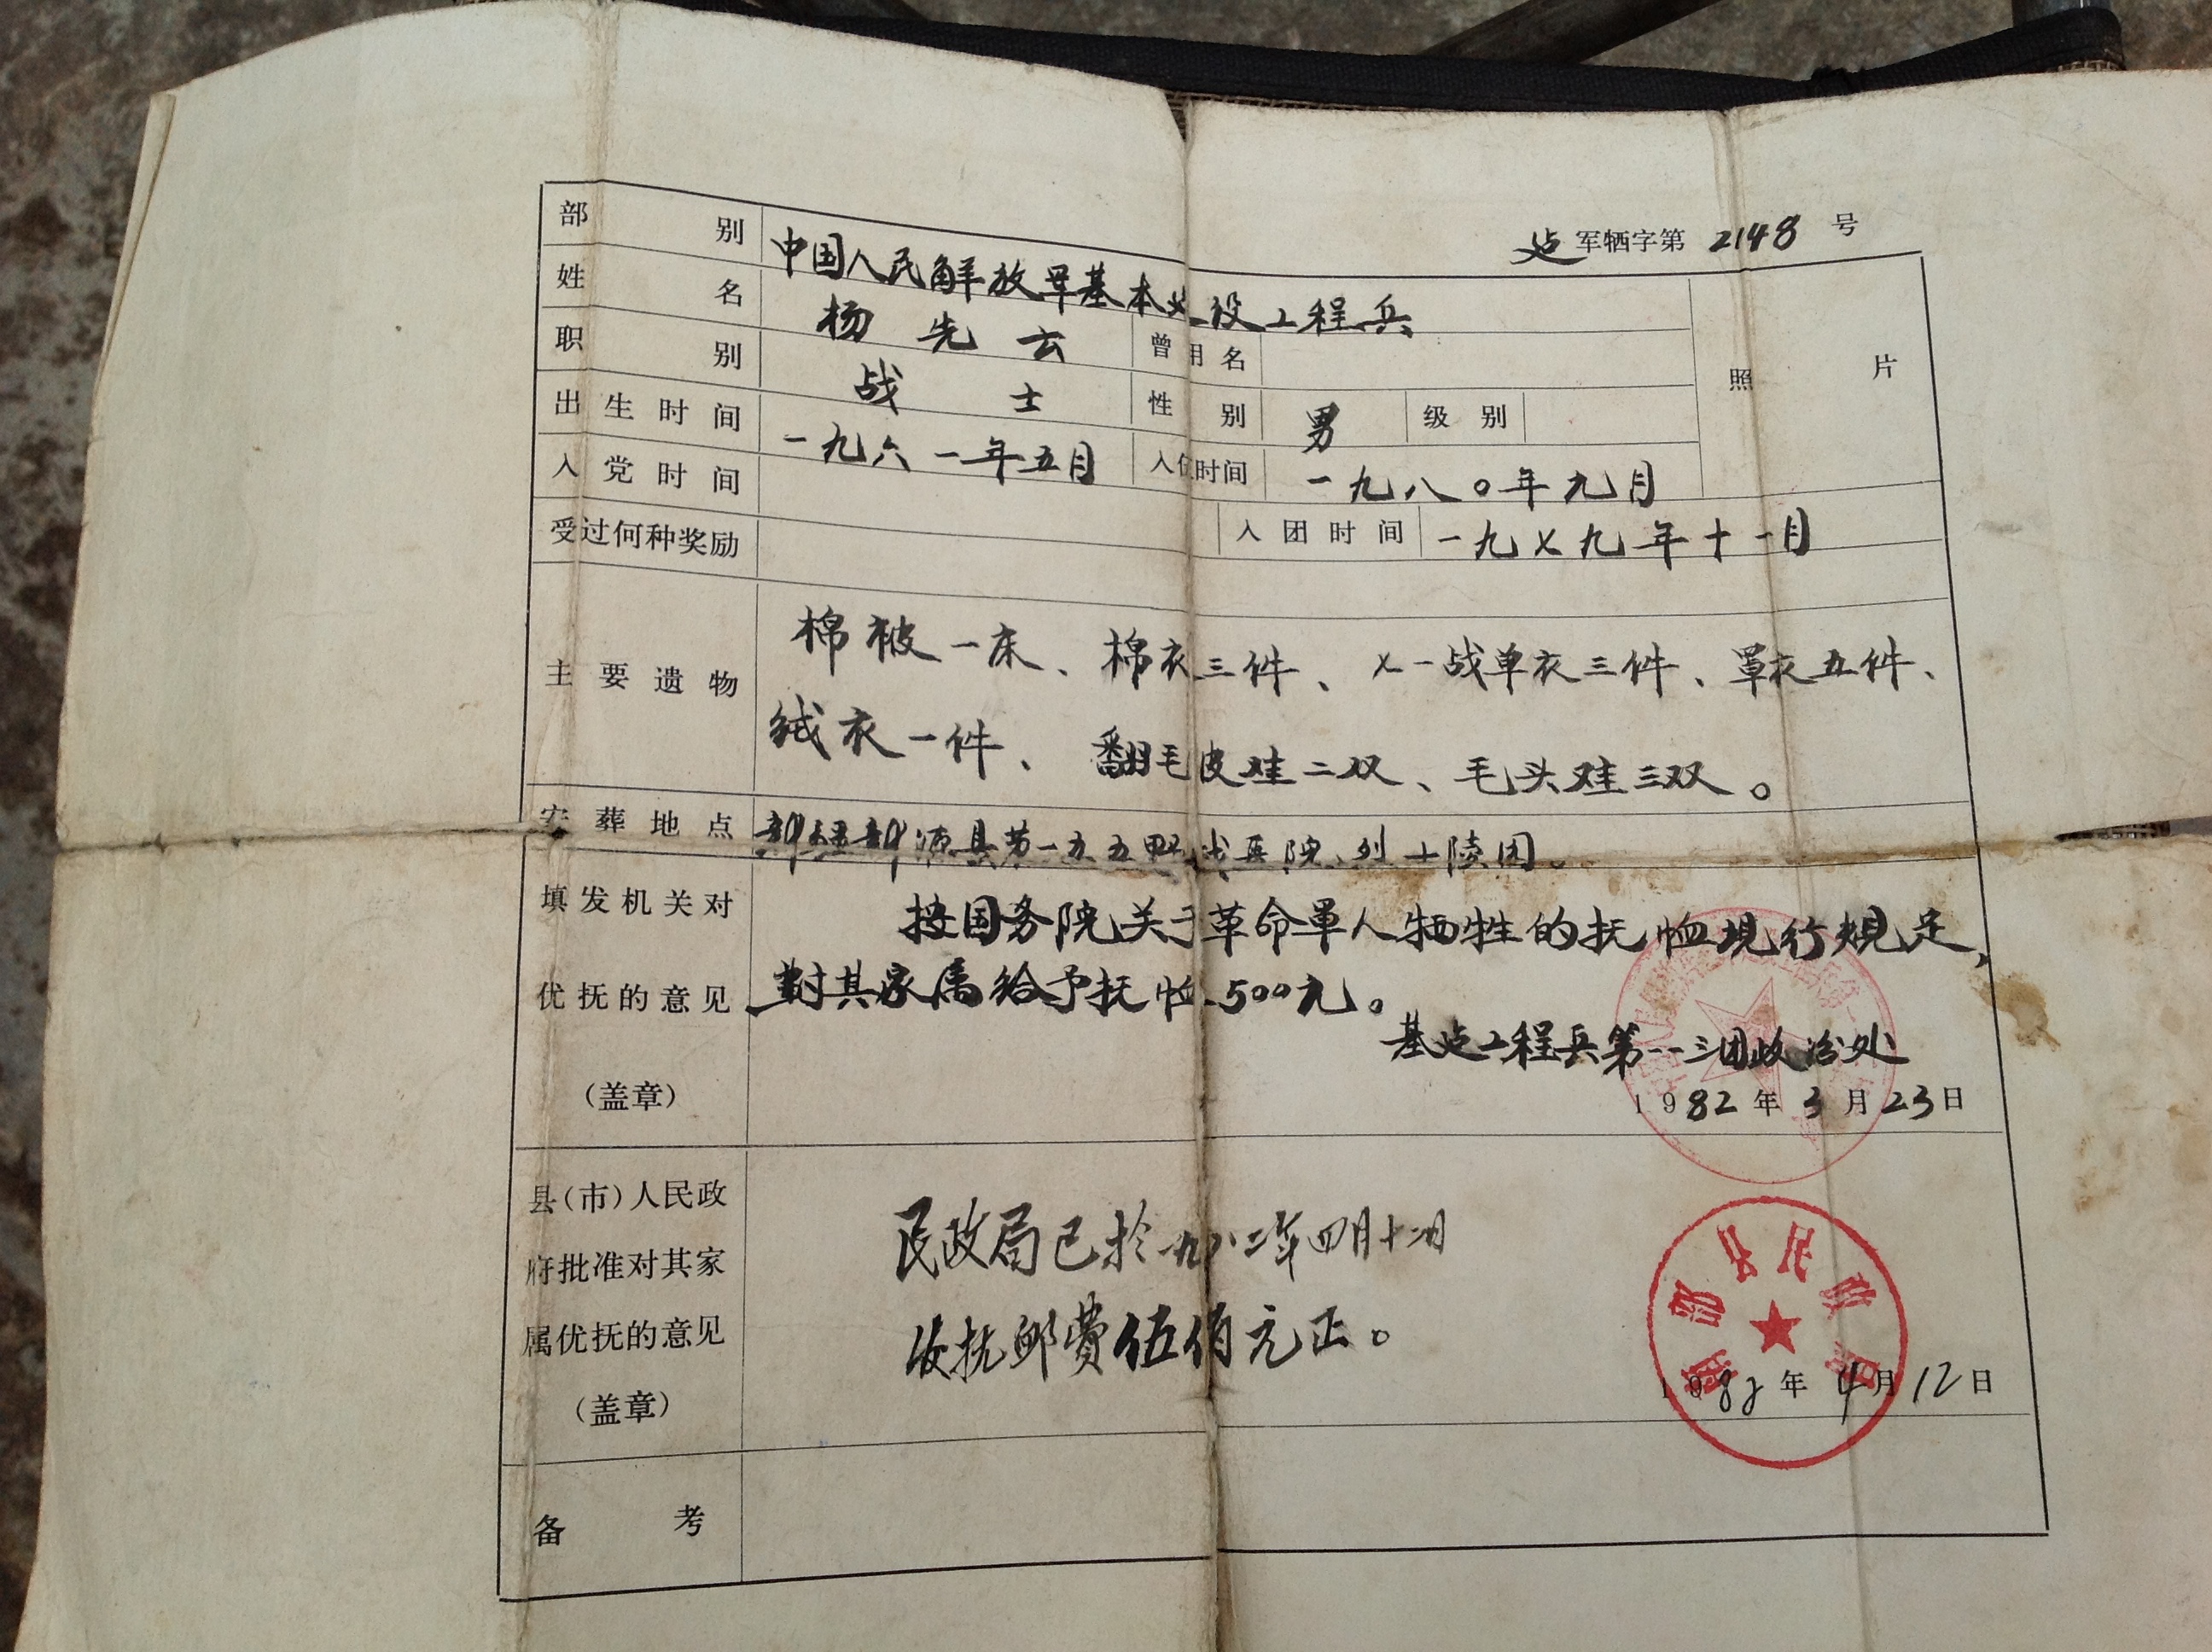 建军牺字第 2148 号
部别 中国人民解放军基本建设工程兵
姓名 杨先云 曾用名
职别 战士 性别 男 级别
照片
出生时间 一九六一年五月 入伍时间 一九八〇年九月
入党时间 入团时间 一九七九年十一月
受过何种奖励
主要遗物 棉被一床、棉衣三件、七一战单衣三件、罩衣五件、
绒衣一件、翻毛皮鞋二双、毛头鞋三双。
安葬地点 新疆新源县第一五五野战医院烈士陵园。
填发机关对
优抚的意见
(盖章)
按国务院关于革命军人牺牲的抚恤现行规定,
對其家属给予抚恤500元。
基建工程兵第一一三团政治处
1982年3月23日
县(市)人民政
府批准对其家
属优抚的意见
(盖章)
民政局已於一九八二年四月十二日
收抚邮費伍佰元正。
1982年4月12日
备考